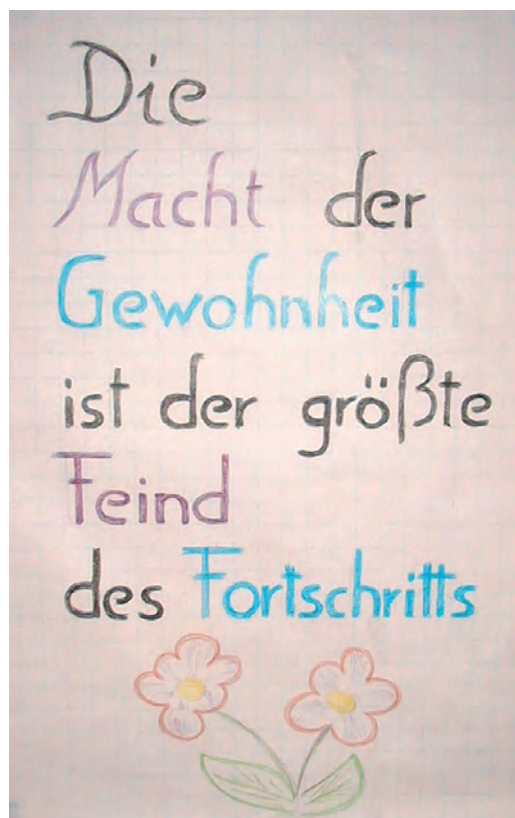 Die
Macht der
Gewohnheit
ist der größte
Feind
des Fortschritts